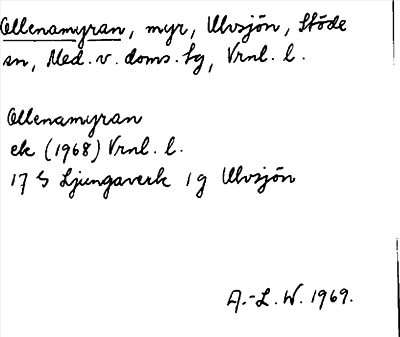 Ollenamyran, myr, Ulvsjön, Stöde
sn, Med. v. doms. tg, Vrnl. l.
Ollenamyran
ek (1968) Vrnl. l.
17 G Ljungaverk 1 g Ulvsjön
A.-L. W. 1969.